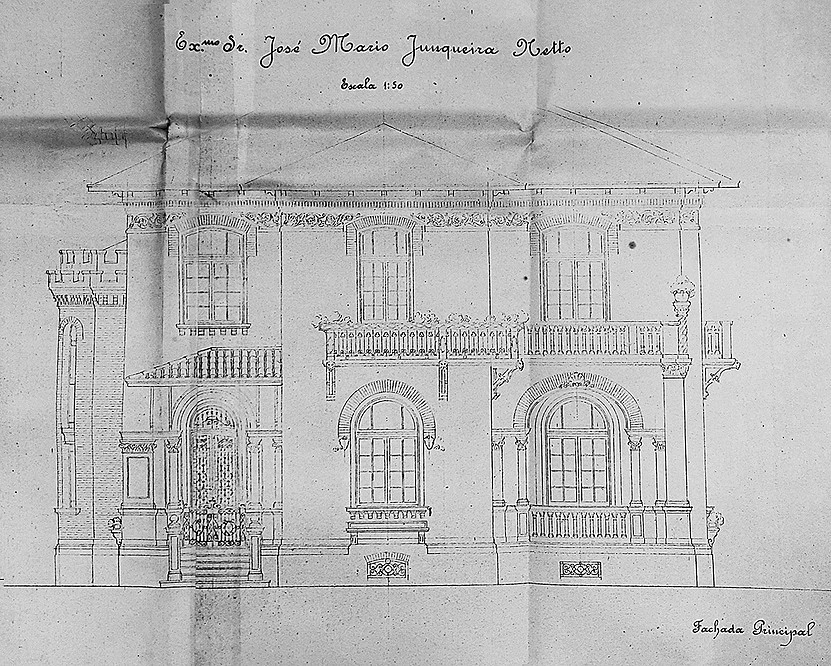 Ex.mo Sr. José Mario Junqueira Netto
Escala 1:50
Fachada Principal